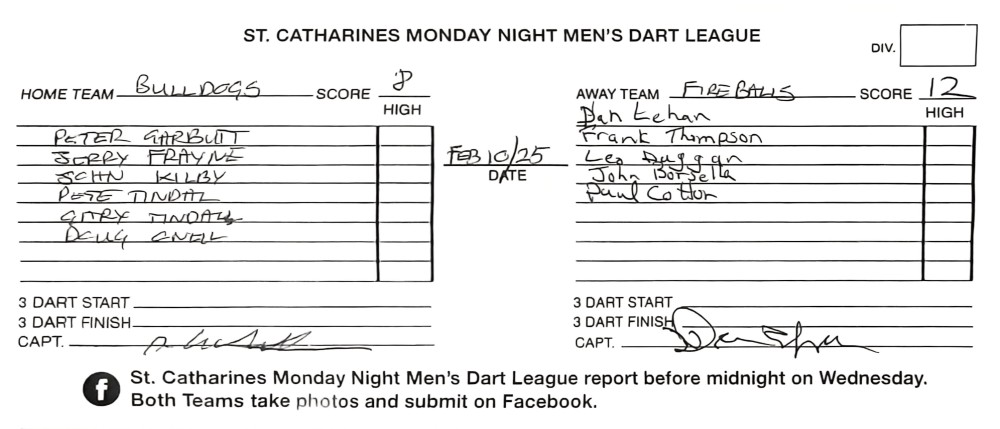 ST. CATHARINES MONDAY NIGHT MEN'S DART LEAGUE
DIV.
HOME TEAM BULLDOGS SCORE 8
HIGH
PETER GARBUTT
JERRY FRAYNE
JOHN KILBY
PETE TINDAL
GARY TINDALL
DOUG SNELL
FEB 10/25
DATE
AWAY TEAM FIREBALLS SCORE 12
HIGH
Dan Lehan
Frank Thompson
Leo Duggan
John Borsella
Paul Cotton
3 DART START
3 DART FINISH
CAPT.
3 DART START
3 DART FINISH
CAPT.
f St. Catharines Monday Night Men's Dart League report before midnight on Wednesday.
Both Teams take photos and submit on Facebook.